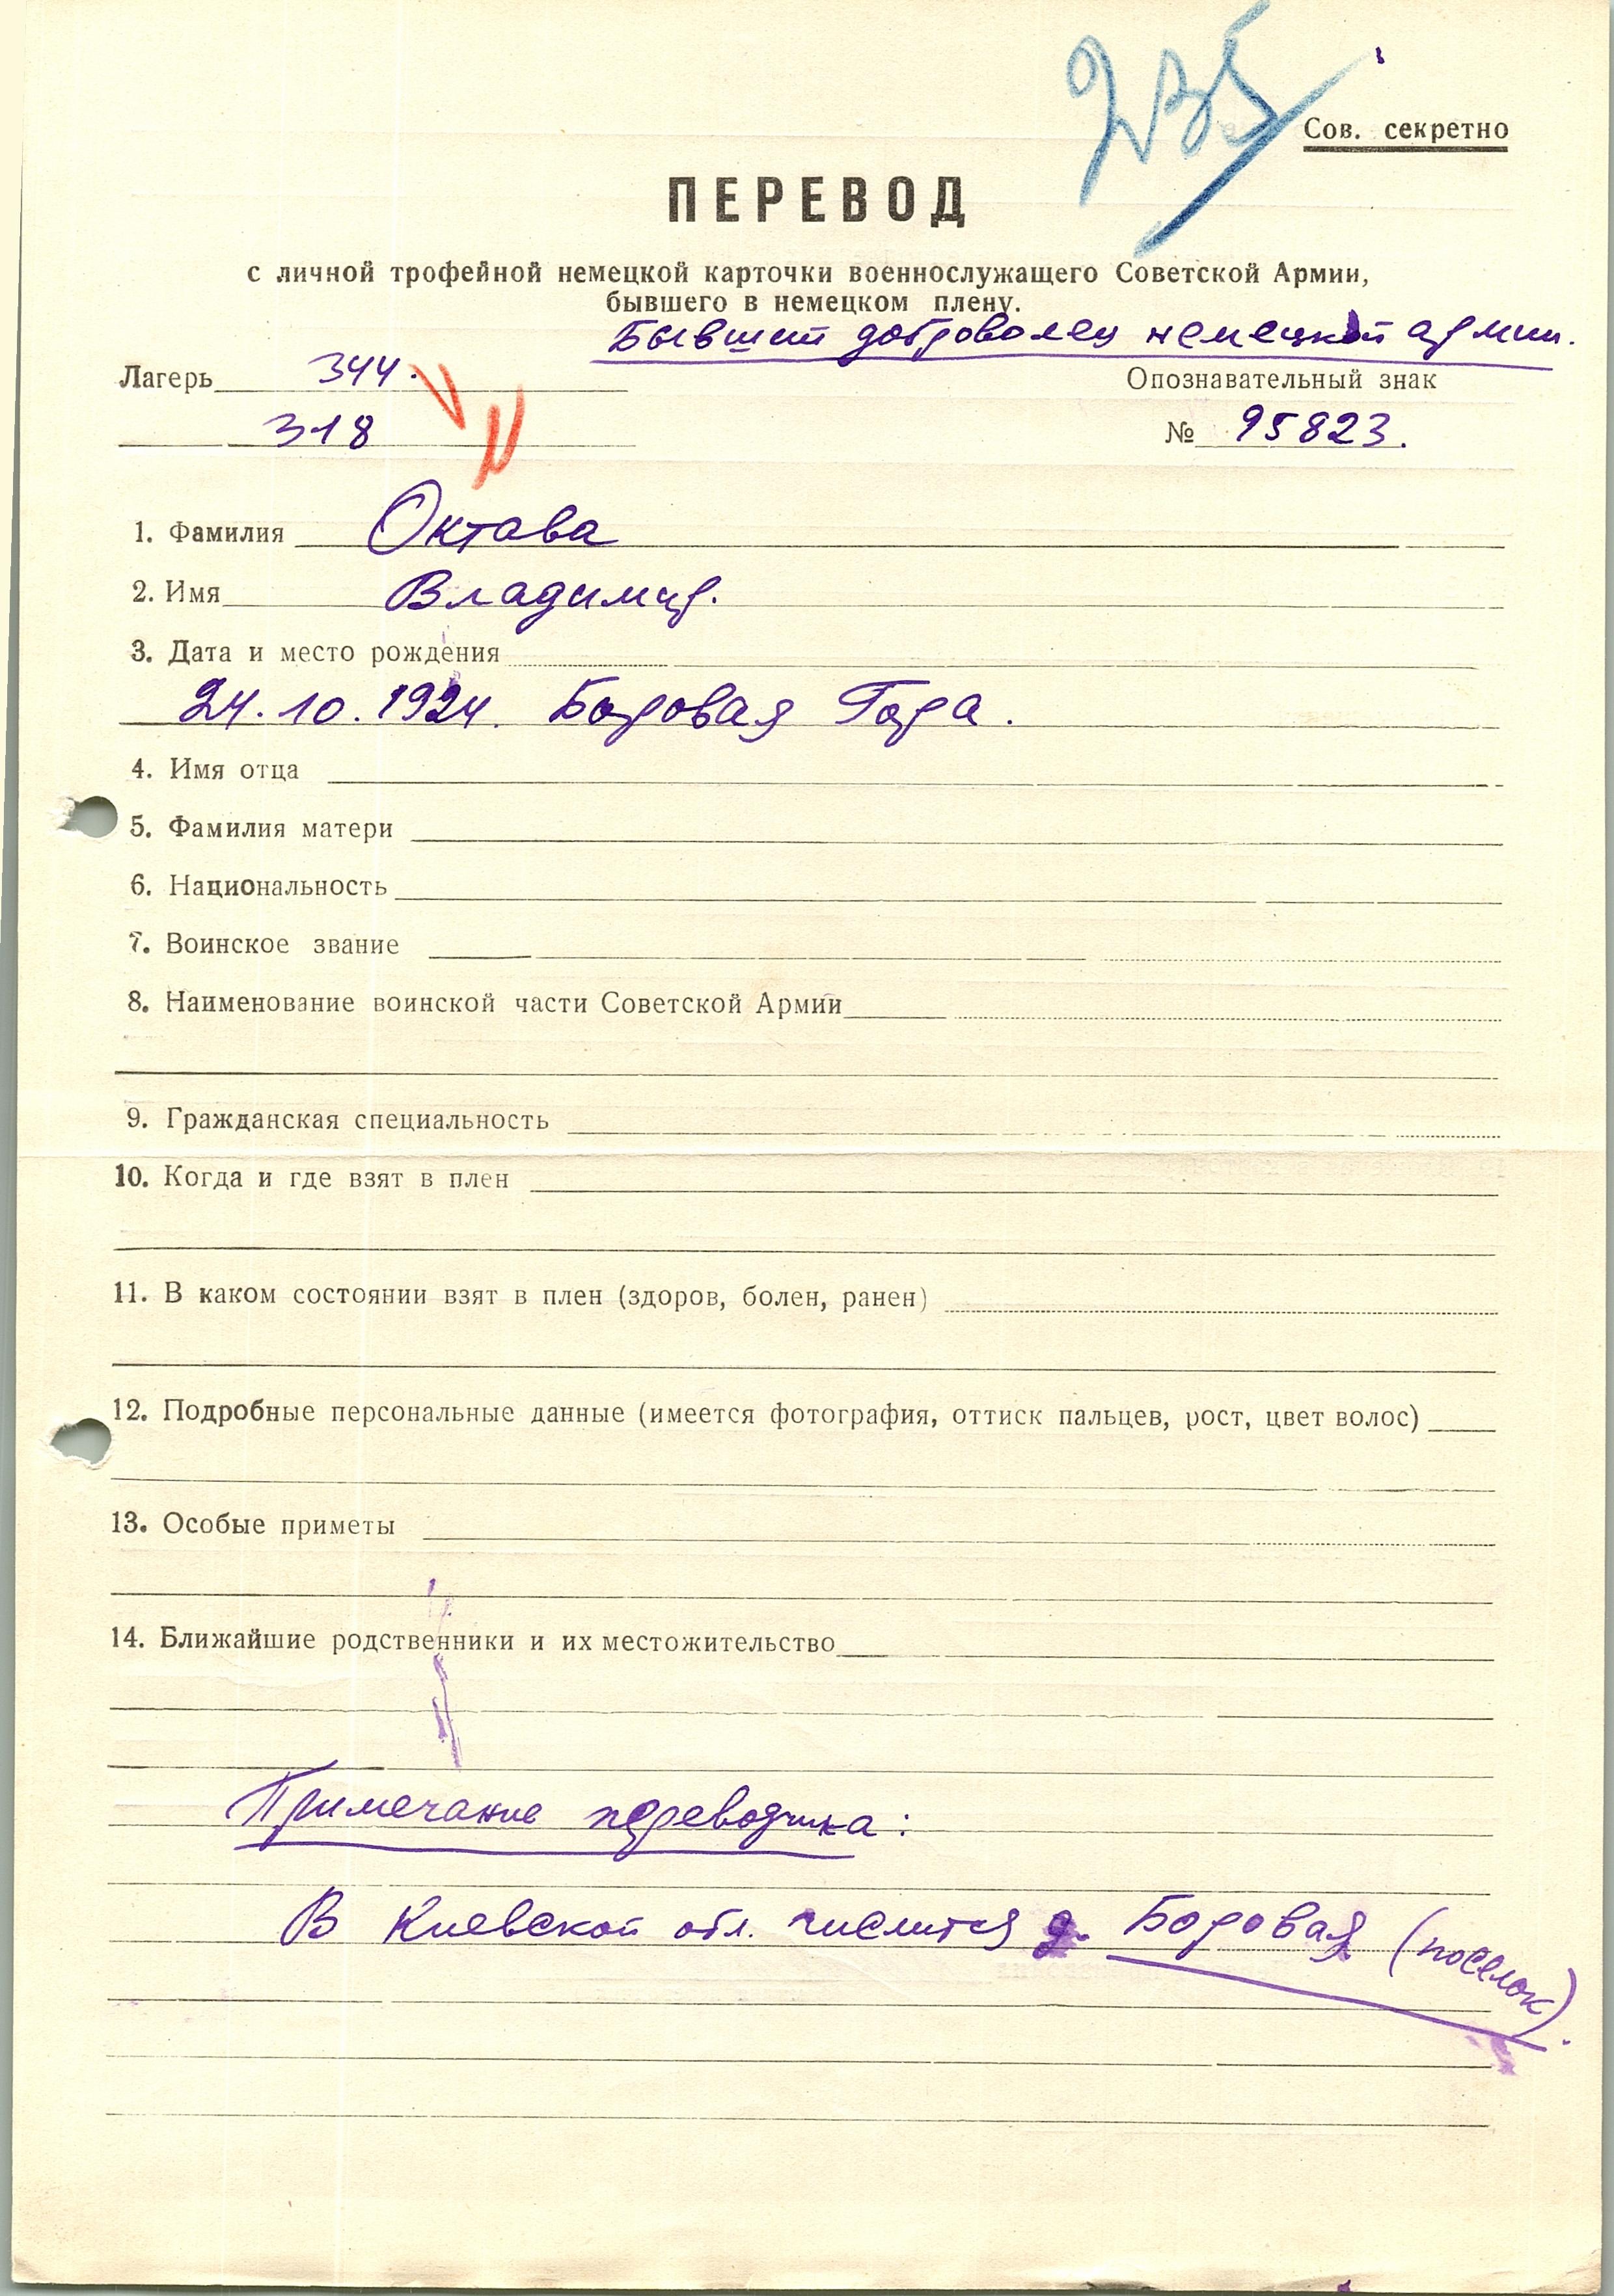 235
Сов. секретно
ПЕРЕВОД
с личной трофейной немецкой карточки военнослужащего Советской Армии,
бывшего в немецком плену.
Бывший доброволец немецкой армии.
Лагерь 344.
Опознавательный знак
318
№ 95823.
1. Фамилия Октава
2. Имя Владимир.
3. Дата и место рождения
24.10.1924. Боровая Гора.
4. Имя отца
5. Фамилия матери
6. Национальность
7. Воинское звание
8. Наименование воинской части Советской Армии
9. Гражданская специальность
10. Когда и где взят в плен
11. В каком состоянии взят в плен (здоров, болен, ранен)
12. Подробные персональные данные (имеется фотография, оттиск пальцев, рост, цвет волос)
13. Особые приметы
14. Ближайшие родственники и их местожительство
Примечание переводчика:
В Киевской обл. числится д. Боровая (поселок).